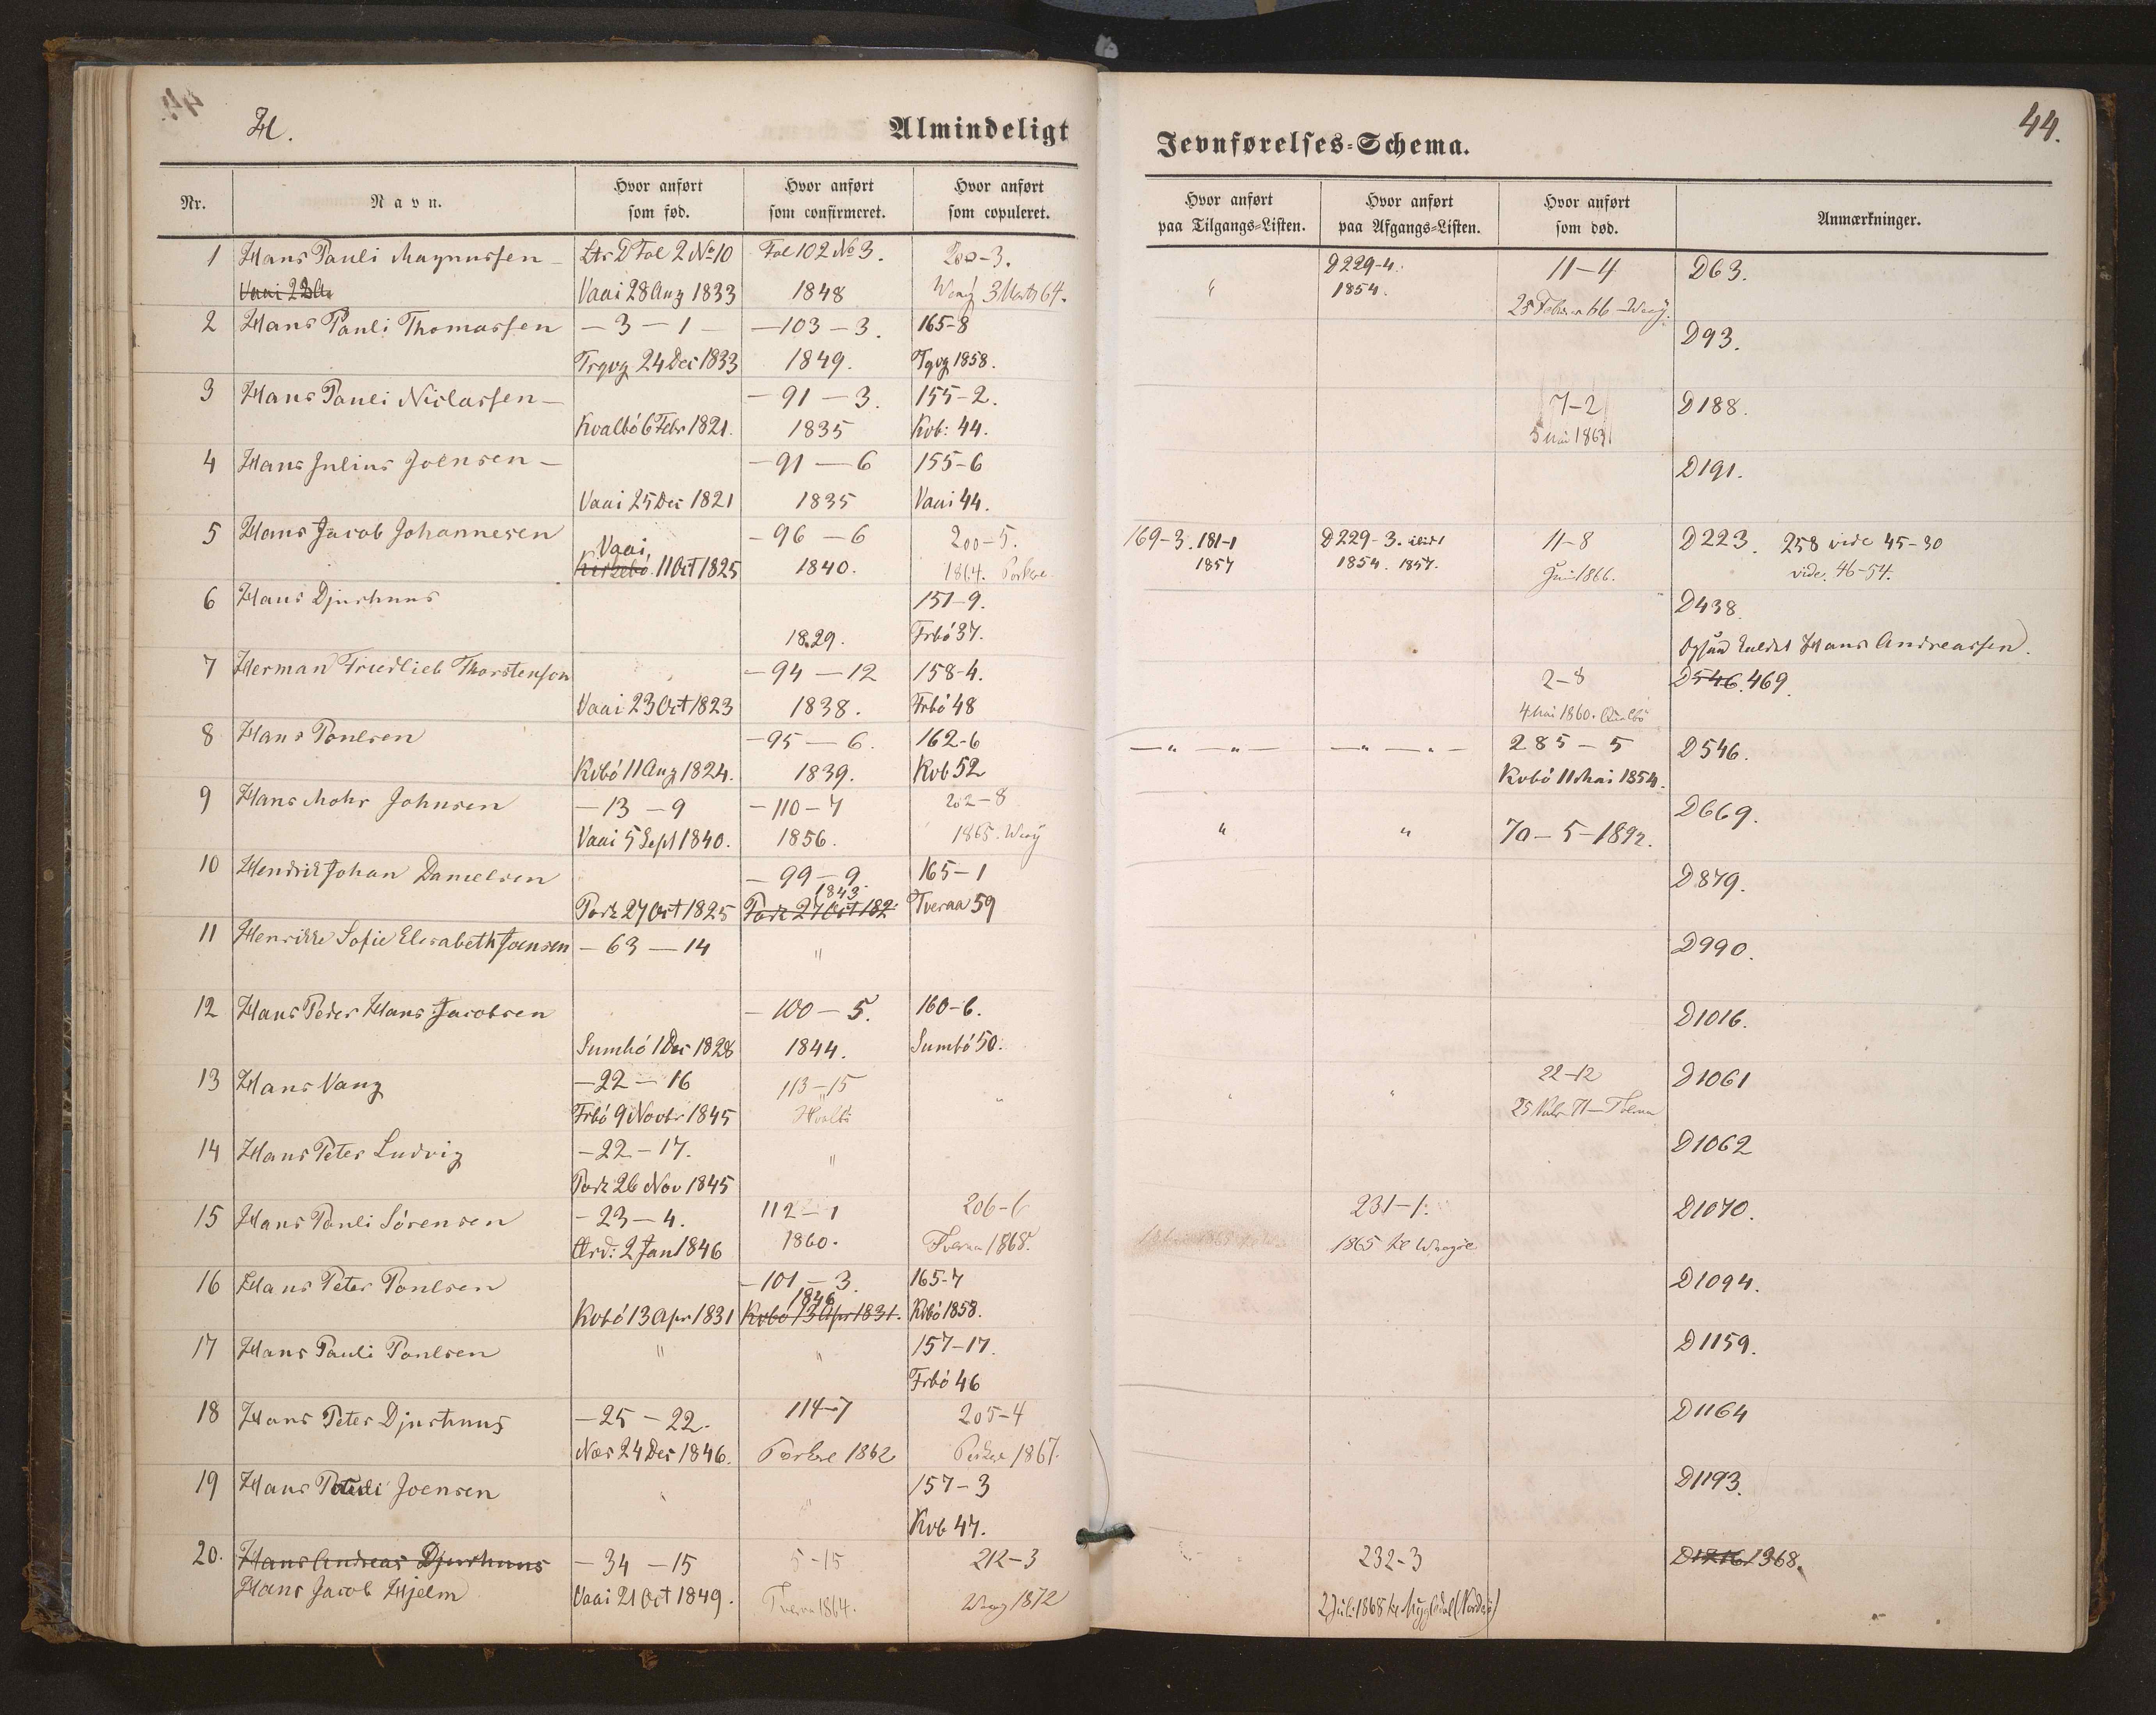 H.
Almindeligt
Jevnførelses-Schema.
44.
Nr.
Navn.
Hvor anført som fød.
Hvor anført som confirmeret.
Hvor anført som copuleret.
Hvor anført paa Tilgangs-Listen.
Hvor anført paa Afgangs-Listen.
Hvor anført som død.
Anmærkninger.
1 Hans Pauli Magnussen — Ltr D Fol 2 No 10 Fol 102 No 3. 200-3. " D229-4. 11-4 D63.
Vaai 28 Aug 1833 1848 3 Marts 64. 1854. 25 Febr
2 Hans Pauli Thomassen — 3 — 1 — — 103 — 3. 165-8 D93.
Trgvg 24 Dec 1833 1849. Tgvg 1858.
3 Hans Pauli Niclassen — — 91 — 3. 155-2. 7-2 D188.
Kvalbó 6 Febr 1821. 1835 Kvb: 44. 5 Mai 1863
4 Hans Julius Joensen — — 91 — 6 155-6 D191.
Vaai 25 Dec 1821 1835 Vaai 44.
5 Hans Jacob Johannesen — 96 — 6 200-5. 169-3. 181-1 D229-3. 11-8 D223. 258 vide 45-30
Vaai, 11 Oct 1825 1840. 1864. Porkere 1857 1854. 1857. Juni 1866. vide. 46-54.
6 Hans Djurhuus 151-9. D438.
1829. Frbó 37. Ogsaa kaldet Hans Andreassen.
7 Herman Friedlieb Thorstensen — 94 — 12 158-4. 2-8 D546. 469.
Vaai 23 Oct 1823 1838. Frbó 48 4 Mai 1860. Qualbö
8 Hans Poulsen — 95 — 6. 162-6 — " — " — — " — " — 285 — 5 D546.
Kvbó 11 Aug 1824. 1839. Kvb 52 Kvbó 11 Mai 1854.
9 Hans Mohr Johnsen — 13 — 9 — 110 — 7 202-8 " " 70 — 5 — 1892. D669.
Vaai 5 Sept 1840. 1856. 1865.
10 Hendrik Johan Danielsen — 99 — 9 165-1 D879.
Pork 27 Oct 1825 1843 Pork 27 Oct 182 Tveraa 59
11 Henrikke Sofie Elisabeth Joensen — 63 — 14 " D990.
12 Hans Peder Hans Jacobsen — 100 — 5. 160-6. D1016.
Sumbó 1 Dec 1828 1844. Sumbó 50.
13 Hans Vang — 22 — 16 113-15 " " " 22-12 D1061
Frbó 9 Novbr 1845 Hvalbö
14 Hans Peter Ludvig — 22 — 17. " D1062
Pork 26 Nov 1845
15 Hans Pauli Sórensen — 23 — 4. 112-1 206-6 231-1. D1070.
2 Jan 1846 1860. Tveraa 1868. 1865 til Waagöe
16 Hans Peter Poulsen — 101 — 3. 165-7 D1094.
Kvbó 13 Apr 1831 1846 Kvbó 13 Apr 1831. Kvbó 1858.
17 Hans Pauli Poulsen " " 157-17. D1159.
Frbó 46
18 Hans Peter Djurhuus — 25 — 22. 114-7 205-4 D1164
Nes 24 Dec 1846. Porkere 1862 Porkere 1867.
19 Hans Pauli Joensen " " 157-3 D1193.
Kvb 47.
20. Hans Andreas Djurhuus — 34 — 15 5-15 212-3 232-3 D1216 1368.
Hans Jacob Hjelm Vaai 21 Oct 1849. Tveraa 1864. 1872 2 Juli 1868 til